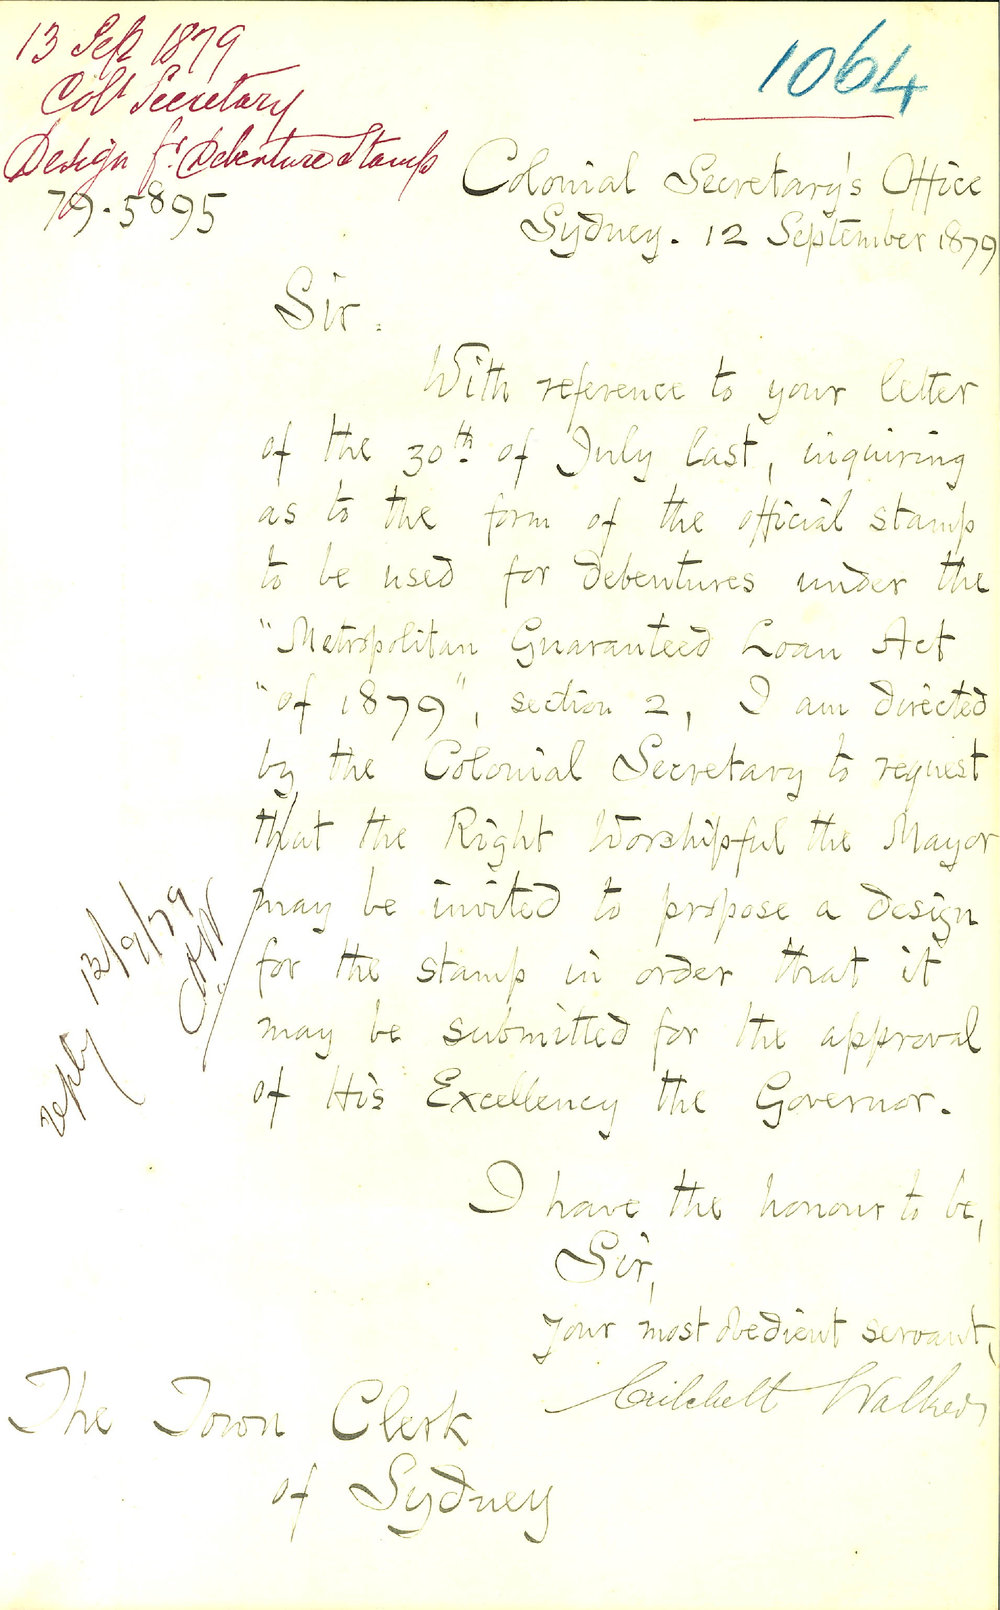 13 Sep 1879
Col^l Secretary
Design f^r Debenture Stamp
79.5895
1064
Colonial Secretary's Office
Sydney. 12 September 1879
Sir.
With reference to your letter
of the 30th of July last, inquiring
as to the form of the official stamp
to be used for debentures under the
"Metropolitan Guaranteed Loan Act
"of 1879", section 2, I am directed
by the Colonial Secretary to request
that the Right Worshipful the Mayor
may be invited to propose a design
for the stamp in order that it
may be submitted for the approval
of His Excellency the Governor.
reply 13/9/79
I have the honour to be,
Sir,
your most obedient servant,
Critchett Walker
The Town Clerk
of Sydney